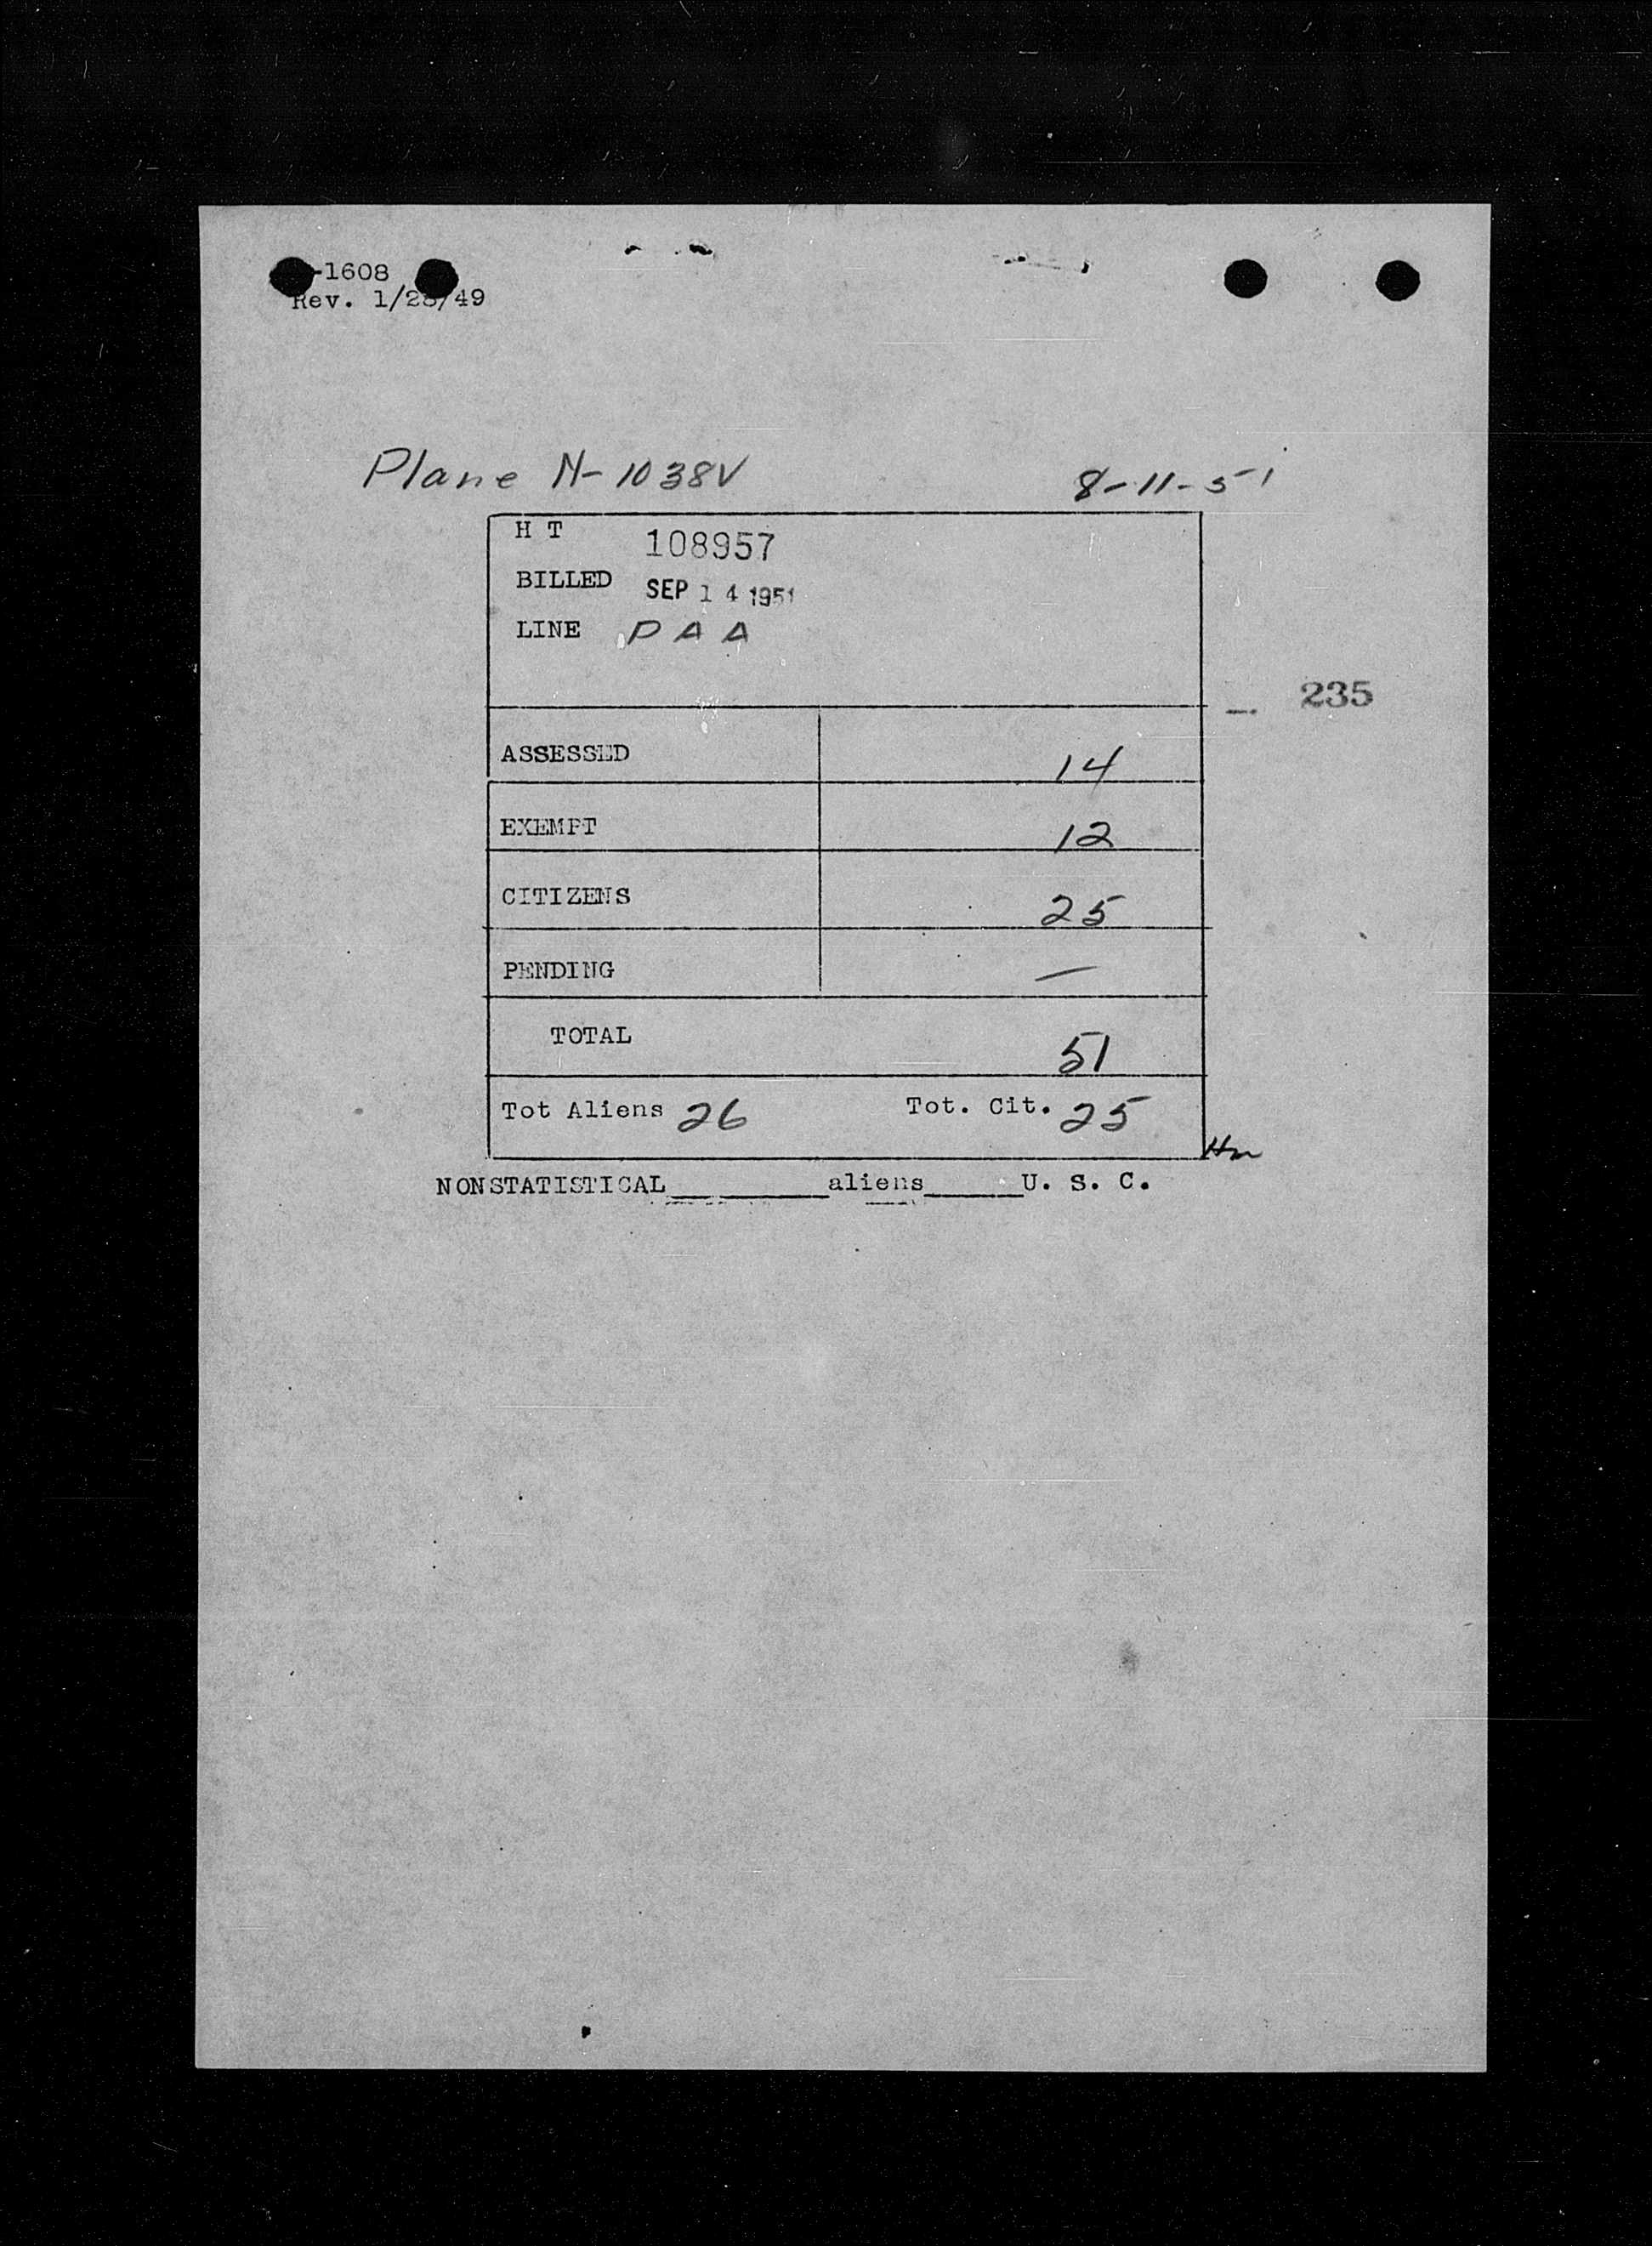 -1608
Rev. 1/28/49
Plane N-1038V 8-11-51
H T 108957
BILLED SEP 14 1951
LINE PAA
235
ASSESSED 14
EXEMPT 12
CITIZENS 25
PENDING —
TOTAL 51
Tot Aliens 26 Tot. Cit. 25
NONSTATISTICAL__________aliens______U. S. C.